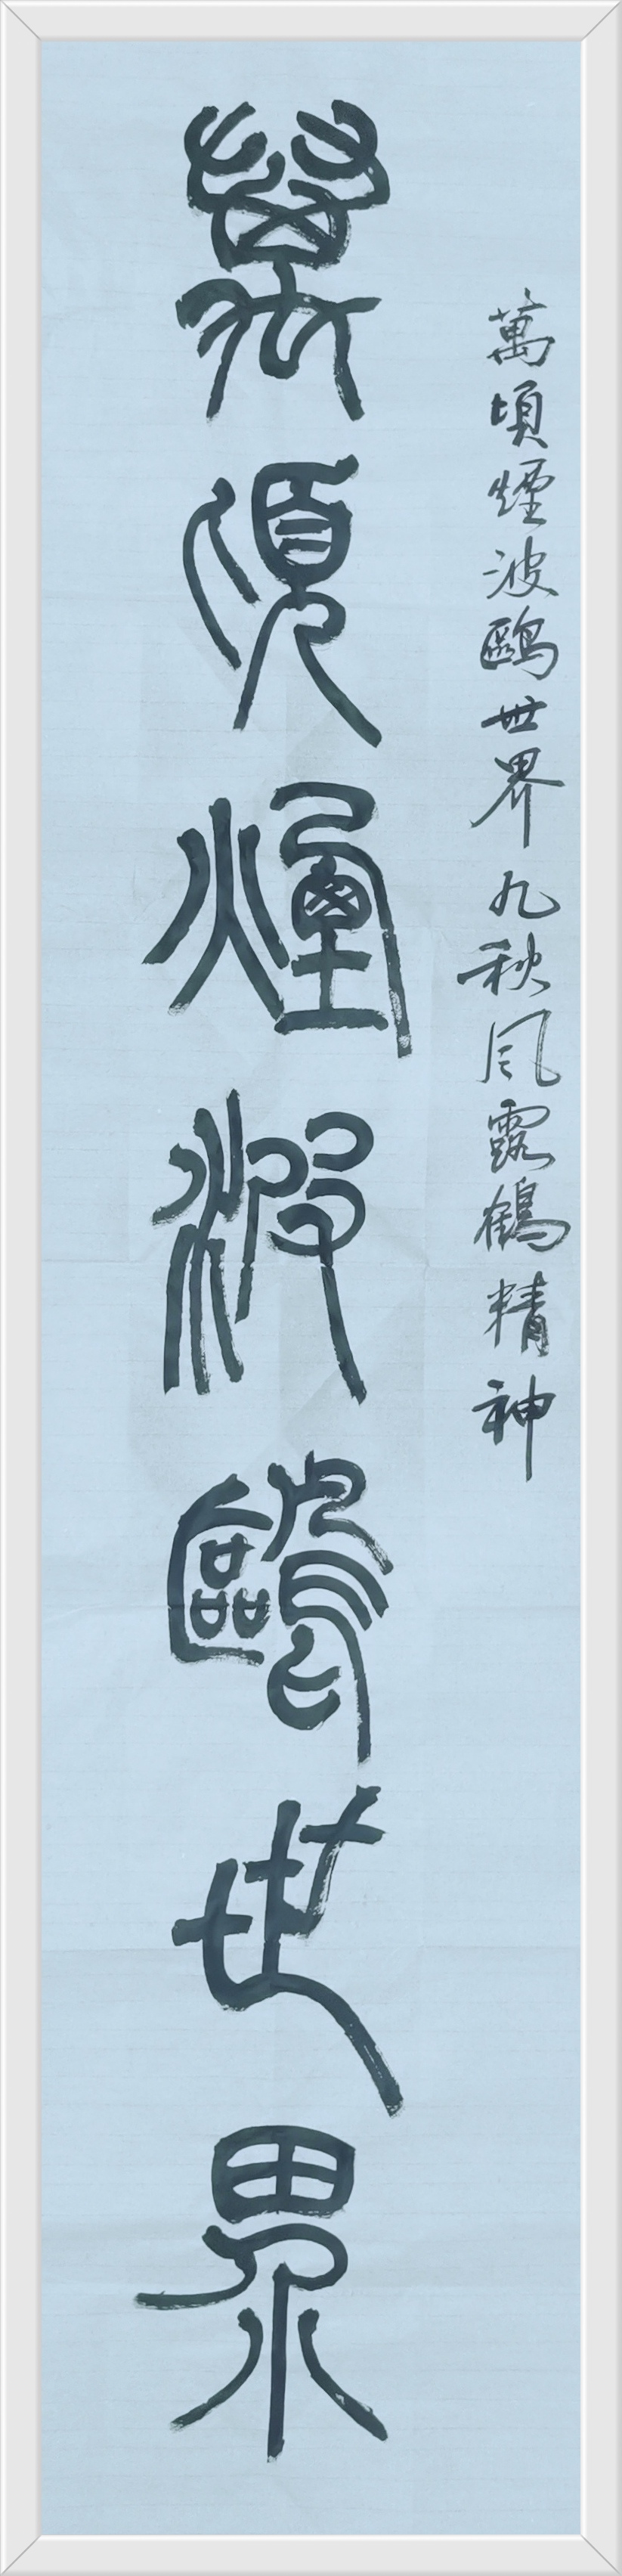 萬頃煙波鷗世界九秋風露鶴精神
萬頃煙波鷗世界